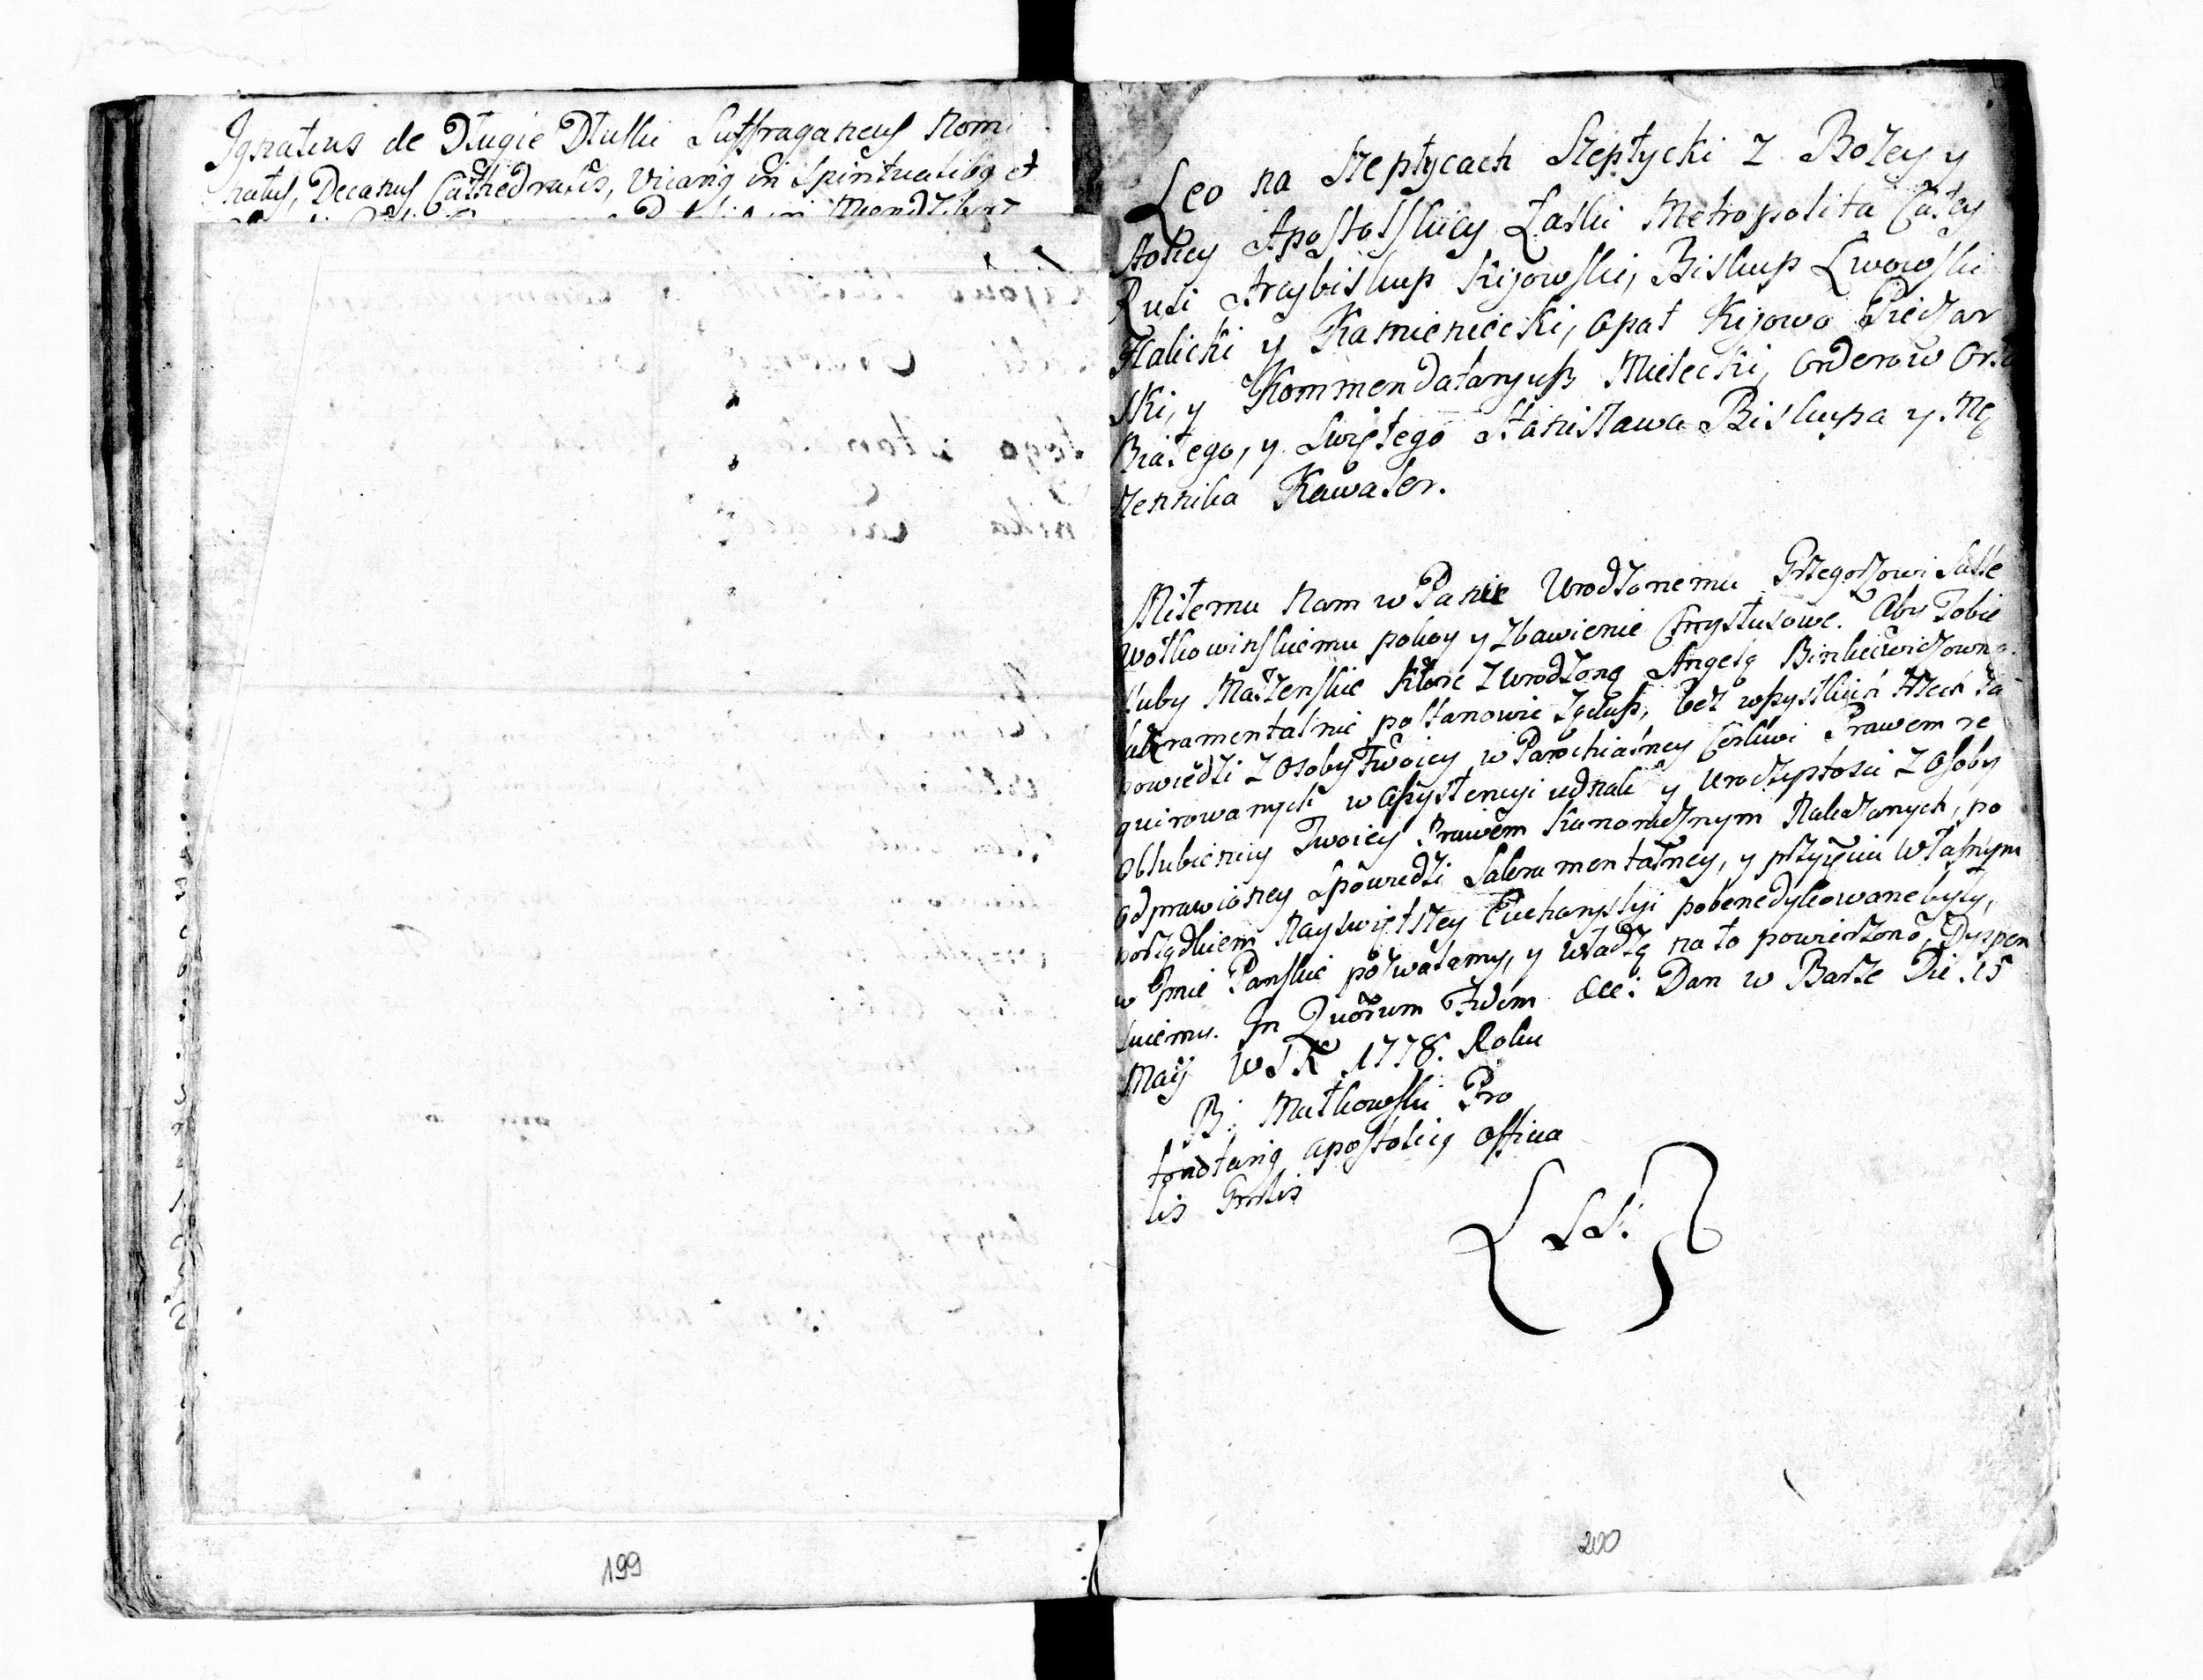 Ignatius de Długie Dłuski Suffraganeus Nomi
natus, Decanus Cathedralis, Vicariꝰ in Spiritualibꝰ et
199
Leo na Szeptycach Szeptycki z Bożey y
Stolicy Apostolskiey Łaski Metropolita Całey
Rusi Arcybiskup Kijowski, Biskup Lwowski
Halicki y Kamieniecki, Opat Kijowo Pieczar
ski, y Kommendataryusz Mielecki, Orderow Orła
Białego, y Swiętego Stanisława Biskupa y Mę
czennika Kawaler.
Miłemu Nam w Panie Urodzonemu Grzegorzowi
Wołkowinskiemu pokoy y Zbawienie Chrystusowe. Aby Tobie
sluby Małżenskie ktore z Urodzoną Angelą Binkiewiczowną
sakramentalnie postanowić żądasz, bez wszystkich trzech Za
powiedzi z Osoby Twoiey w Parochialney Cerkwi Prawem re
quirowanych w Assystencyi y z Osoby
Oblubienicy Twoiey Prawem Kanonicznym Nakazanych, po
odprawioney Spowiedzi Sakramentalney, y przyięciu Własnym
porządkiem Nayswiętszey Eucharystyi pobenedykowane były,
w Jmie Panskie pozwalamy, y Władzę na to powierzoną, Dyspen
suiemy. In Quorum Fidem &cc: Dan w Barze Die 15
Maij WSK 1778. Roku
B: Matkowski Pro
tonotariꝰ Apostolicꝰ Officia
lis Gnrlis
LS.
200